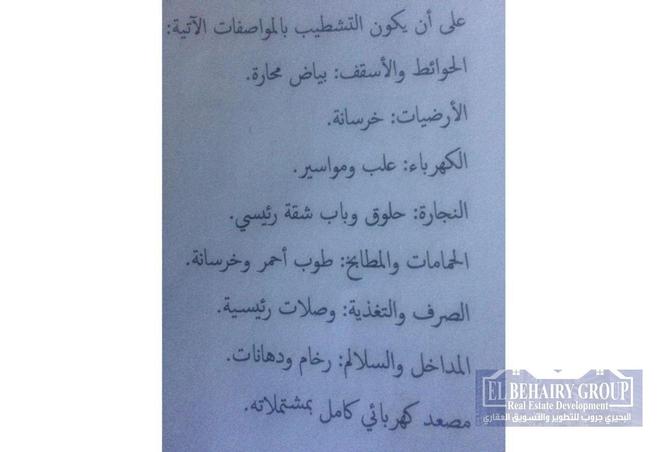 على أن يكون التشطيب بالمواصفات الآتية:
الحوائط والأسقف: بياض محارة.
الأرضيات: خرسانة.
الكهرباء: علب ومواسير.
النجارة: حلوق وباب شقة رئيسي.
الحمامات والمطابخ: طوب أحمر وخرسانة.
الصرف والتغذية: وصلات رئيسية.
المداخل والسلالم: رخام ودهانات.
مصعد كهربائي كامل بمشتملاته.
EL BEHAIRY GROUP
Real Estate Development
البحيري جروب للتطوير والتسويق العقاري